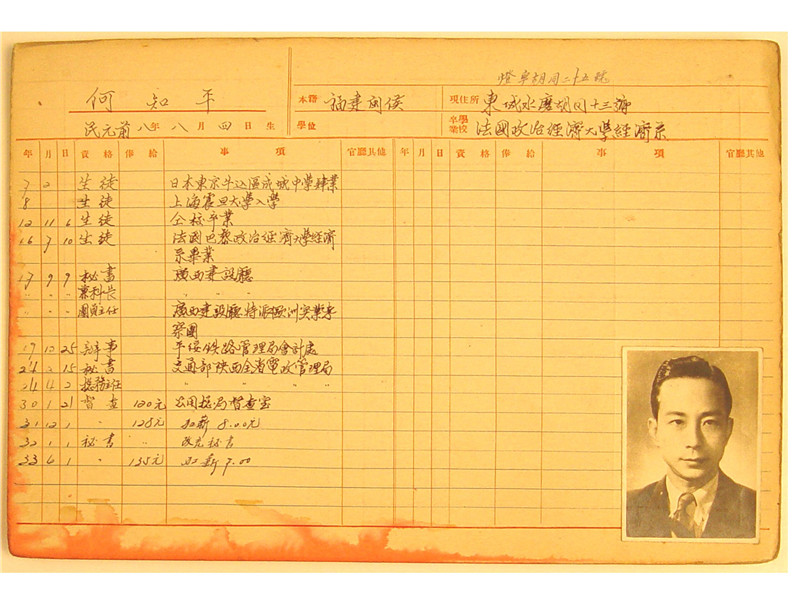 燈草胡同二十五號
何知平 本籍 福建閩侯 現住所 東城水磨胡同十三號
民元前八年八月四日生 學位 卒業學校 法國政治經濟大學經濟系
年 月 日 資格 俸給 事項 官廳其他 年 月 日 資格 俸給 事項 官廳其他
7 2 生徒 日本東京牛込區成城中學肄業
8 生徒 上海震旦大學入學
12 11 6 生徒 仝校卒業
16 7 10 生徒 法國巴黎政治經濟大學經濟
系畢業
17 9 9 秘書 廣西建設廳
〃 〃 〃 兼科長 〃 〃
〃 〃 〃 團主任 廣西建設廳特派歐洲實業考
察團
17 12 25 辦事 平綏鐵路管理局會計處
24 2 15 秘書 交通部陝西全省電政管理局
24 4 2 總務主任 〃 〃 〃
30 1 21 督查 120元 公用總局督查室
31 12 1 〃 128元 加薪 8.00元
32 1 1 秘書 〃 改充秘書
33 6 1 〃 135元 加薪 7.00